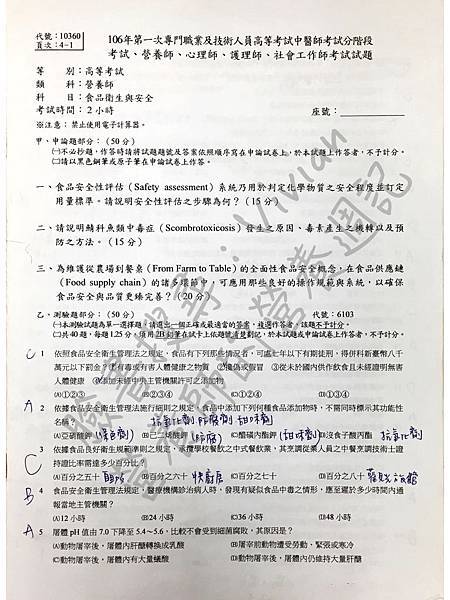 代號：10360
頁次：4-1
106年第一次專門職業及技術人員高等考試中醫師考試分階段
考試、營養師、心理師、護理師、社會工作師考試試題
等　　別：高等考試
類　　科：營養師
科　　目：食品衛生與安全
考試時間：2小時
座號：
※注意：禁止使用電子計算器。
甲、申論題部分：（50分）
㈠不必抄題，作答時請將試題題號及答案依照順序寫在申論試卷上，於本試題上作答者，不予計分。
㈡請以黑色鋼筆或原子筆在申論試卷上作答。
一、食品安全性評估（Safety assessment）系統乃用於判定化學物質之安全程度並訂定
用量標準。請說明安全性評估之步驟為何？（15分）
二、請說明鯖科魚類中毒症（Scombrotoxicosis）發生之原因、毒素產生之機轉以及預
防之方法。（15分）
三、為維護從農場到餐桌（From Farm to Table）的全面性食品安全概念，在食品供應鏈
（Food supply chain）的諸多環節中，可應用那些良好的操作規範與系統，以確保
食品安全與品質更臻完善？（20分）
乙、測驗題部分：（50分）
代號：6103
㈠本測驗試題為單一選擇題，請選出一個正確或最適當的答案，複選作答者，該題不予計分。
㈡共40題，每題1.25分，須用2B鉛筆在試卡上依題號清楚劃記，於本試題或申論試卷上作答者，不予計分。
C 1 依照食品安全衛生管理法之規定，食品有下列那些情況者，可處七年以下有期徒刑，得併科新臺幣八千
萬元以下罰金？①有毒或有害人體健康之物質 ②攙偽或假冒 ③從未於國內供作飲食且未經證明無害
人體健康 ④添加未經中央主管機關許可之添加物
(A)①②③ (B)①③④ (C)①②④ (D)②③④
A 2 依據食品安全衛生管理法施行細則之規定，食品中添加下列何種食品添加物時，不需同時標示其功能性
名稱？
抗氧化劑 防腐劑 甜味劑
(A)亞硝酸鉀（保色劑） (B)己二烯酸鉀（防腐） (C)醋磺內酯鉀（甜味劑） (D)沒食子酸丙酯 抗氧化劑
C 3 依據食品良好衛生規範準則之規定，承攬學校餐飲之中式餐飲業，其烹調從業人員之中餐烹調技術士證
持證比率需達多少百分比？
(A)百分之五十 (B)百分之六十 (C)百分之七十 (D)百分之八十
B 4 食品安全衛生管理法規定，醫療機構診治病人時，發現有疑似食品中毒之情形，應至遲於多少時間內通
報當地主管機關？
(A)12小時 (B)24小時 (C)36小時 (D)48小時
A 5 屠體pH值由7.0下降至5.4～5.6，比較不會受到細菌腐敗，其原因是？
(A)動物屠宰後，屠體內肝醣轉換成乳酸 (B)動物屠宰前遭受勞動、緊張或寒冷
(C)動物屠宰後，屠體內有大量蟻酸 (D)動物屠宰後，屠體內仍維持大量肝醣